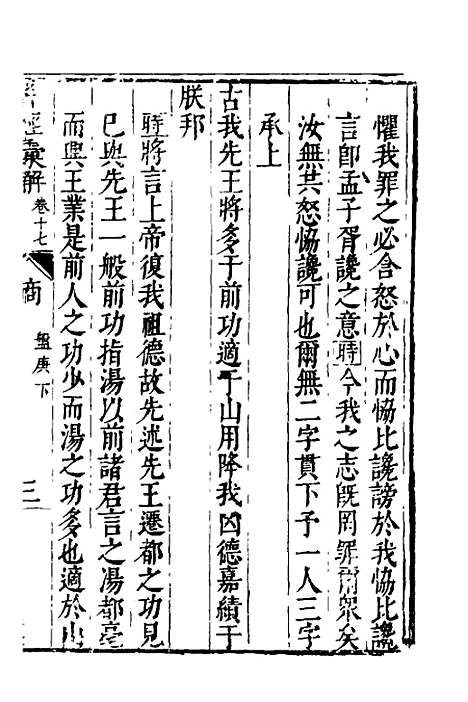 懼我罪之必含怒於心而恊比讒謗於我恊比讒
言卽孟子胥讒之意時今我之志旣罔罪爾眾矣
汝無共怒恊讒可也爾無二字貫下予一人三字
承上
古我先王將多于前功適于山用降我凶德嘉績于
朕邦
時將言上帝復我祖德故先述先王遷都之功見
已與先王一般前功指湯以前諸君言之湯都亳
而興王業是前人之功少而湯之功多也適於山
經彙解 卷十七 商 盤庚下 三